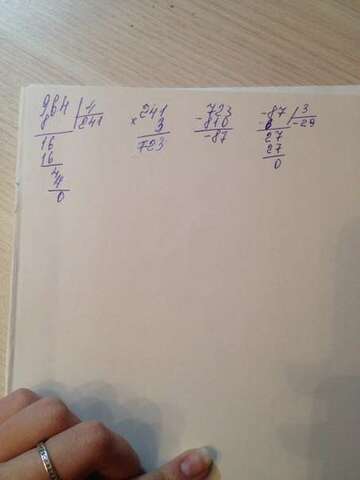 964 4
8 241
16
16
4
4
0
241
× 3
723
723
-810
-87
-87 3
-6 -29
27
27
0